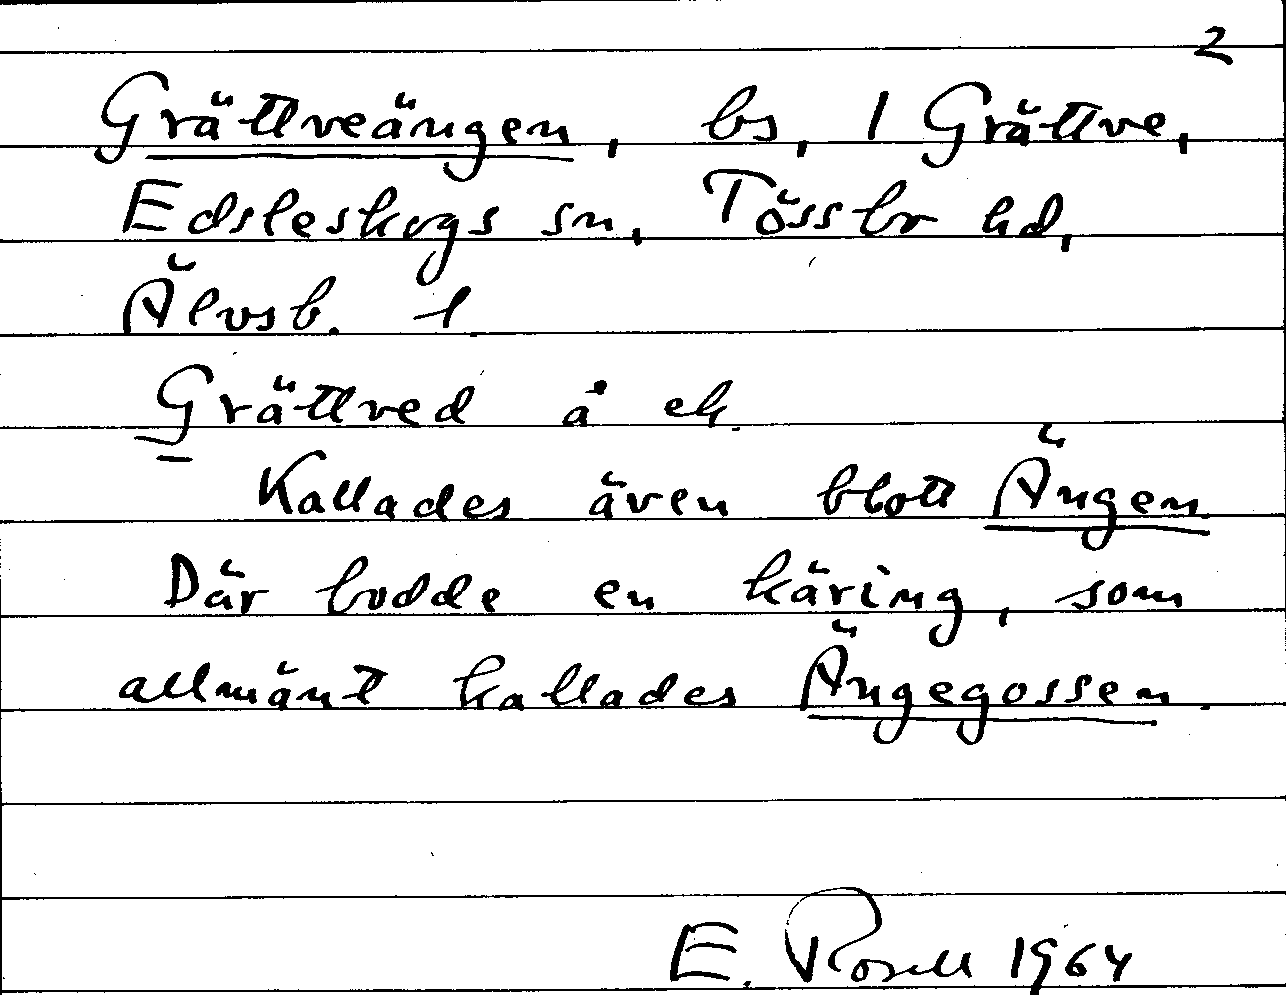 2
Grättveängen, bs, 1 Grättve,
Edsleskogs sn, Tössbo hd,
Älvsb. l.
Grättved å ek.
Kallades även blott Ängen.
Där bodde en käring, som
allmänt kallades Ängegossen.
E. Rosell 1964